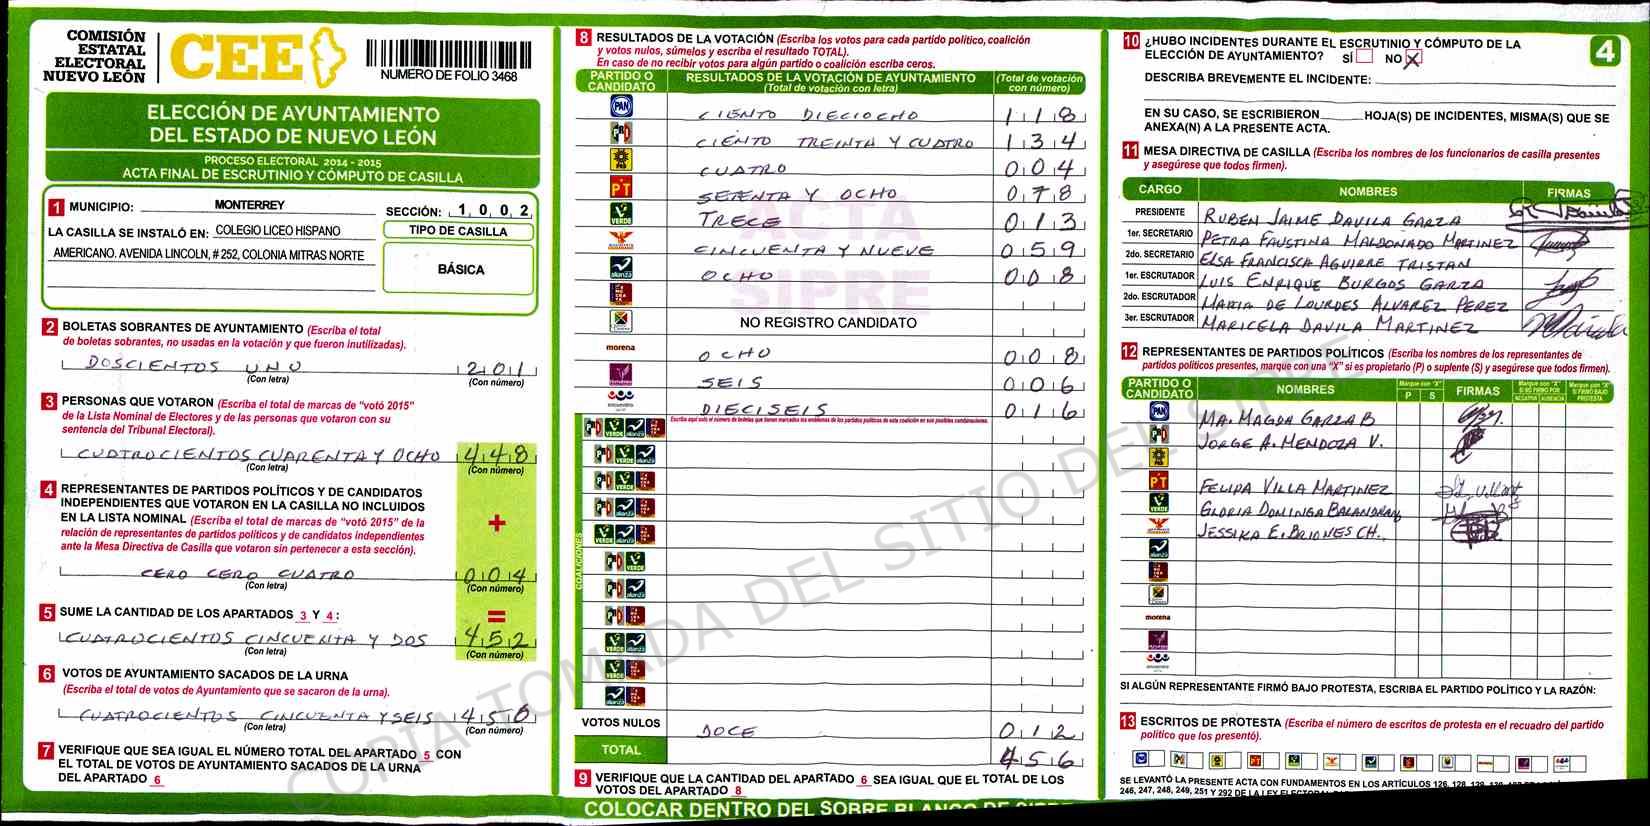 COMISIÓN
ESTATAL
ELECTORAL
NUEVO LEÓN
CEE
NUMERO DE FOLIO 3468
ELECCIÓN DE AYUNTAMIENTO
DEL ESTADO DE NUEVO LEÓN
PROCESO ELECTORAL 2014 - 2015
ACTA FINAL DE ESCRUTINIO Y CÓMPUTO DE CASILLA
1 MUNICIPIO: MONTERREY
SECCIÓN: 1,0,0,2
LA CASILLA SE INSTALÓ EN: COLEGIO LICEO HISPANO
AMERICANO. AVENIDA LINCOLN, # 252, COLONIA MITRAS NORTE
TIPO DE CASILLA
BÁSICA
2 BOLETAS SOBRANTES DE AYUNTAMIENTO (Escriba el total
de boletas sobrantes, no usadas en la votación y que fueron inutilizadas).
DOSCIENTOS UNO 201
(Con letra) (Con número)
3 PERSONAS QUE VOTARON (Escriba el total de marcas de "votó 2015"
de la Lista Nominal de Electores y de las personas que votaron con su
sentencia del Tribunal Electoral).
CUATROCIENTOS CUARENTA Y OCHO 448
(Con letra) (Con número)
4 REPRESENTANTES DE PARTIDOS POLÍTICOS Y DE CANDIDATOS
INDEPENDIENTES QUE VOTARON EN LA CASILLA NO INCLUIDOS
EN LA LISTA NOMINAL (Escriba el total de marcas de "votó 2015" de la
relación de representantes de partidos políticos y de candidatos independientes
ante la Mesa Directiva de Casilla que votaron sin pertenecer a esta sección).
+
CERO CERO CUATRO 004
(Con letra) (Con número)
=
5 SUME LA CANTIDAD DE LOS APARTADOS 3 Y 4:
CUATROCIENTOS CINCUENTA Y DOS 452
(Con letra) (Con número)
6 VOTOS DE AYUNTAMIENTO SACADOS DE LA URNA
(Escriba el total de votos de Ayuntamiento que se sacaron de la urna).
CUATROCIENTOS CINCUENTA Y SEIS 456
(Con letra) (Con número)
7 VERIFIQUE QUE SEA IGUAL EL NÚMERO TOTAL DEL APARTADO 5 CON
EL TOTAL DE VOTOS DE AYUNTAMIENTO SACADOS DE LA URNA
DEL APARTADO 6
8 RESULTADOS DE LA VOTACIÓN (Escriba los votos para cada partido político, coalición
y votos nulos, súmelos y escriba el resultado TOTAL).
En caso de no recibir votos para algún partido o coalición escriba ceros.
PARTIDO O CANDIDATO
RESULTADOS DE LA VOTACIÓN DE AYUNTAMIENTO
(Total de votación con letra)
(Total de votación con número)
PAN CIENTO DIECIOCHO 118
PRD CIENTO TREINTA Y CUATRO 134
PRD CUATRO 004
PT SETENTA Y OCHO 078
VERDE TRECE 013
CINCUENTA Y NUEVE 059
alianza OCHO 008
NO REGISTRO CANDIDATO
morena OCHO 008
SEIS 006
encuentro DIECISEIS 016
ACTA
SIPRE
COALICIONES
VOTOS NULOS DOCE 012
TOTAL 456
9 VERIFIQUE QUE LA CANTIDAD DEL APARTADO 6 SEA IGUAL QUE EL TOTAL DE LOS
VOTOS DEL APARTADO 8
COLOCAR DENTRO DEL SOBRE BLANCO DE SIPRE
10 ¿HUBO INCIDENTES DURANTE EL ESCRUTINIO Y CÓMPUTO DE LA
ELECCIÓN DE AYUNTAMIENTO? SÍ NO X
4
DESCRIBA BREVEMENTE EL INCIDENTE:
EN SU CASO, SE ESCRIBIERON HOJA(S) DE INCIDENTES, MISMA(S) QUE SE
ANEXA(N) A LA PRESENTE ACTA.
11 MESA DIRECTIVA DE CASILLA (Escriba los nombres de los funcionarios de casilla presentes
y asegúrese que todos firmen).
CARGO NOMBRES FIRMAS
PRESIDENTE RUBEN JAIME DAVILA GARZA
1er. SECRETARIO PETRA FAUSTINA MALDONADO MARTINEZ
2do. SECRETARIO ELSA FRANCISCA AGUIRRE TRISTAN
1er. ESCRUTADOR LUIS ENRIQUE BURGOS GARZA
2do. ESCRUTADOR MARIA DE LOURDES ALVAREZ PEREZ
3er. ESCRUTADOR MARICELA DAVILA MARTINEZ
12 REPRESENTANTES DE PARTIDOS POLÍTICOS (Escriba los nombres de los representantes de
partidos políticos presentes, marque con una "X" si es propietario (P) o suplente (S) y asegúrese que todos firmen).
PARTIDO O CANDIDATO NOMBRES Marque con "X" P S FIRMAS
PAN MA. MAGDA GARZA B
JORGE A. MENDOZA V.
PRD
PT FELIPA VILLA MARTINEZ
VERDE GLORIA DOMINGA BALANDRAN
JESSIKA E. BRIONES CH.
morena
SI ALGÚN REPRESENTANTE FIRMÓ BAJO PROTESTA, ESCRIBA EL PARTIDO POLÍTICO Y LA RAZÓN:
13 ESCRITOS DE PROTESTA (Escriba el número de escritos de protesta en el recuadro del partido
político que los presentó).
SE LEVANTÓ LA PRESENTE ACTA CON FUNDAMENTOS EN LOS ARTÍCULOS 126, 128,
246, 247, 248, 249, 251 Y 292 DE LA LEY ELECTORAL
COPIA TOMADA DEL SITIO DEL SIPRE